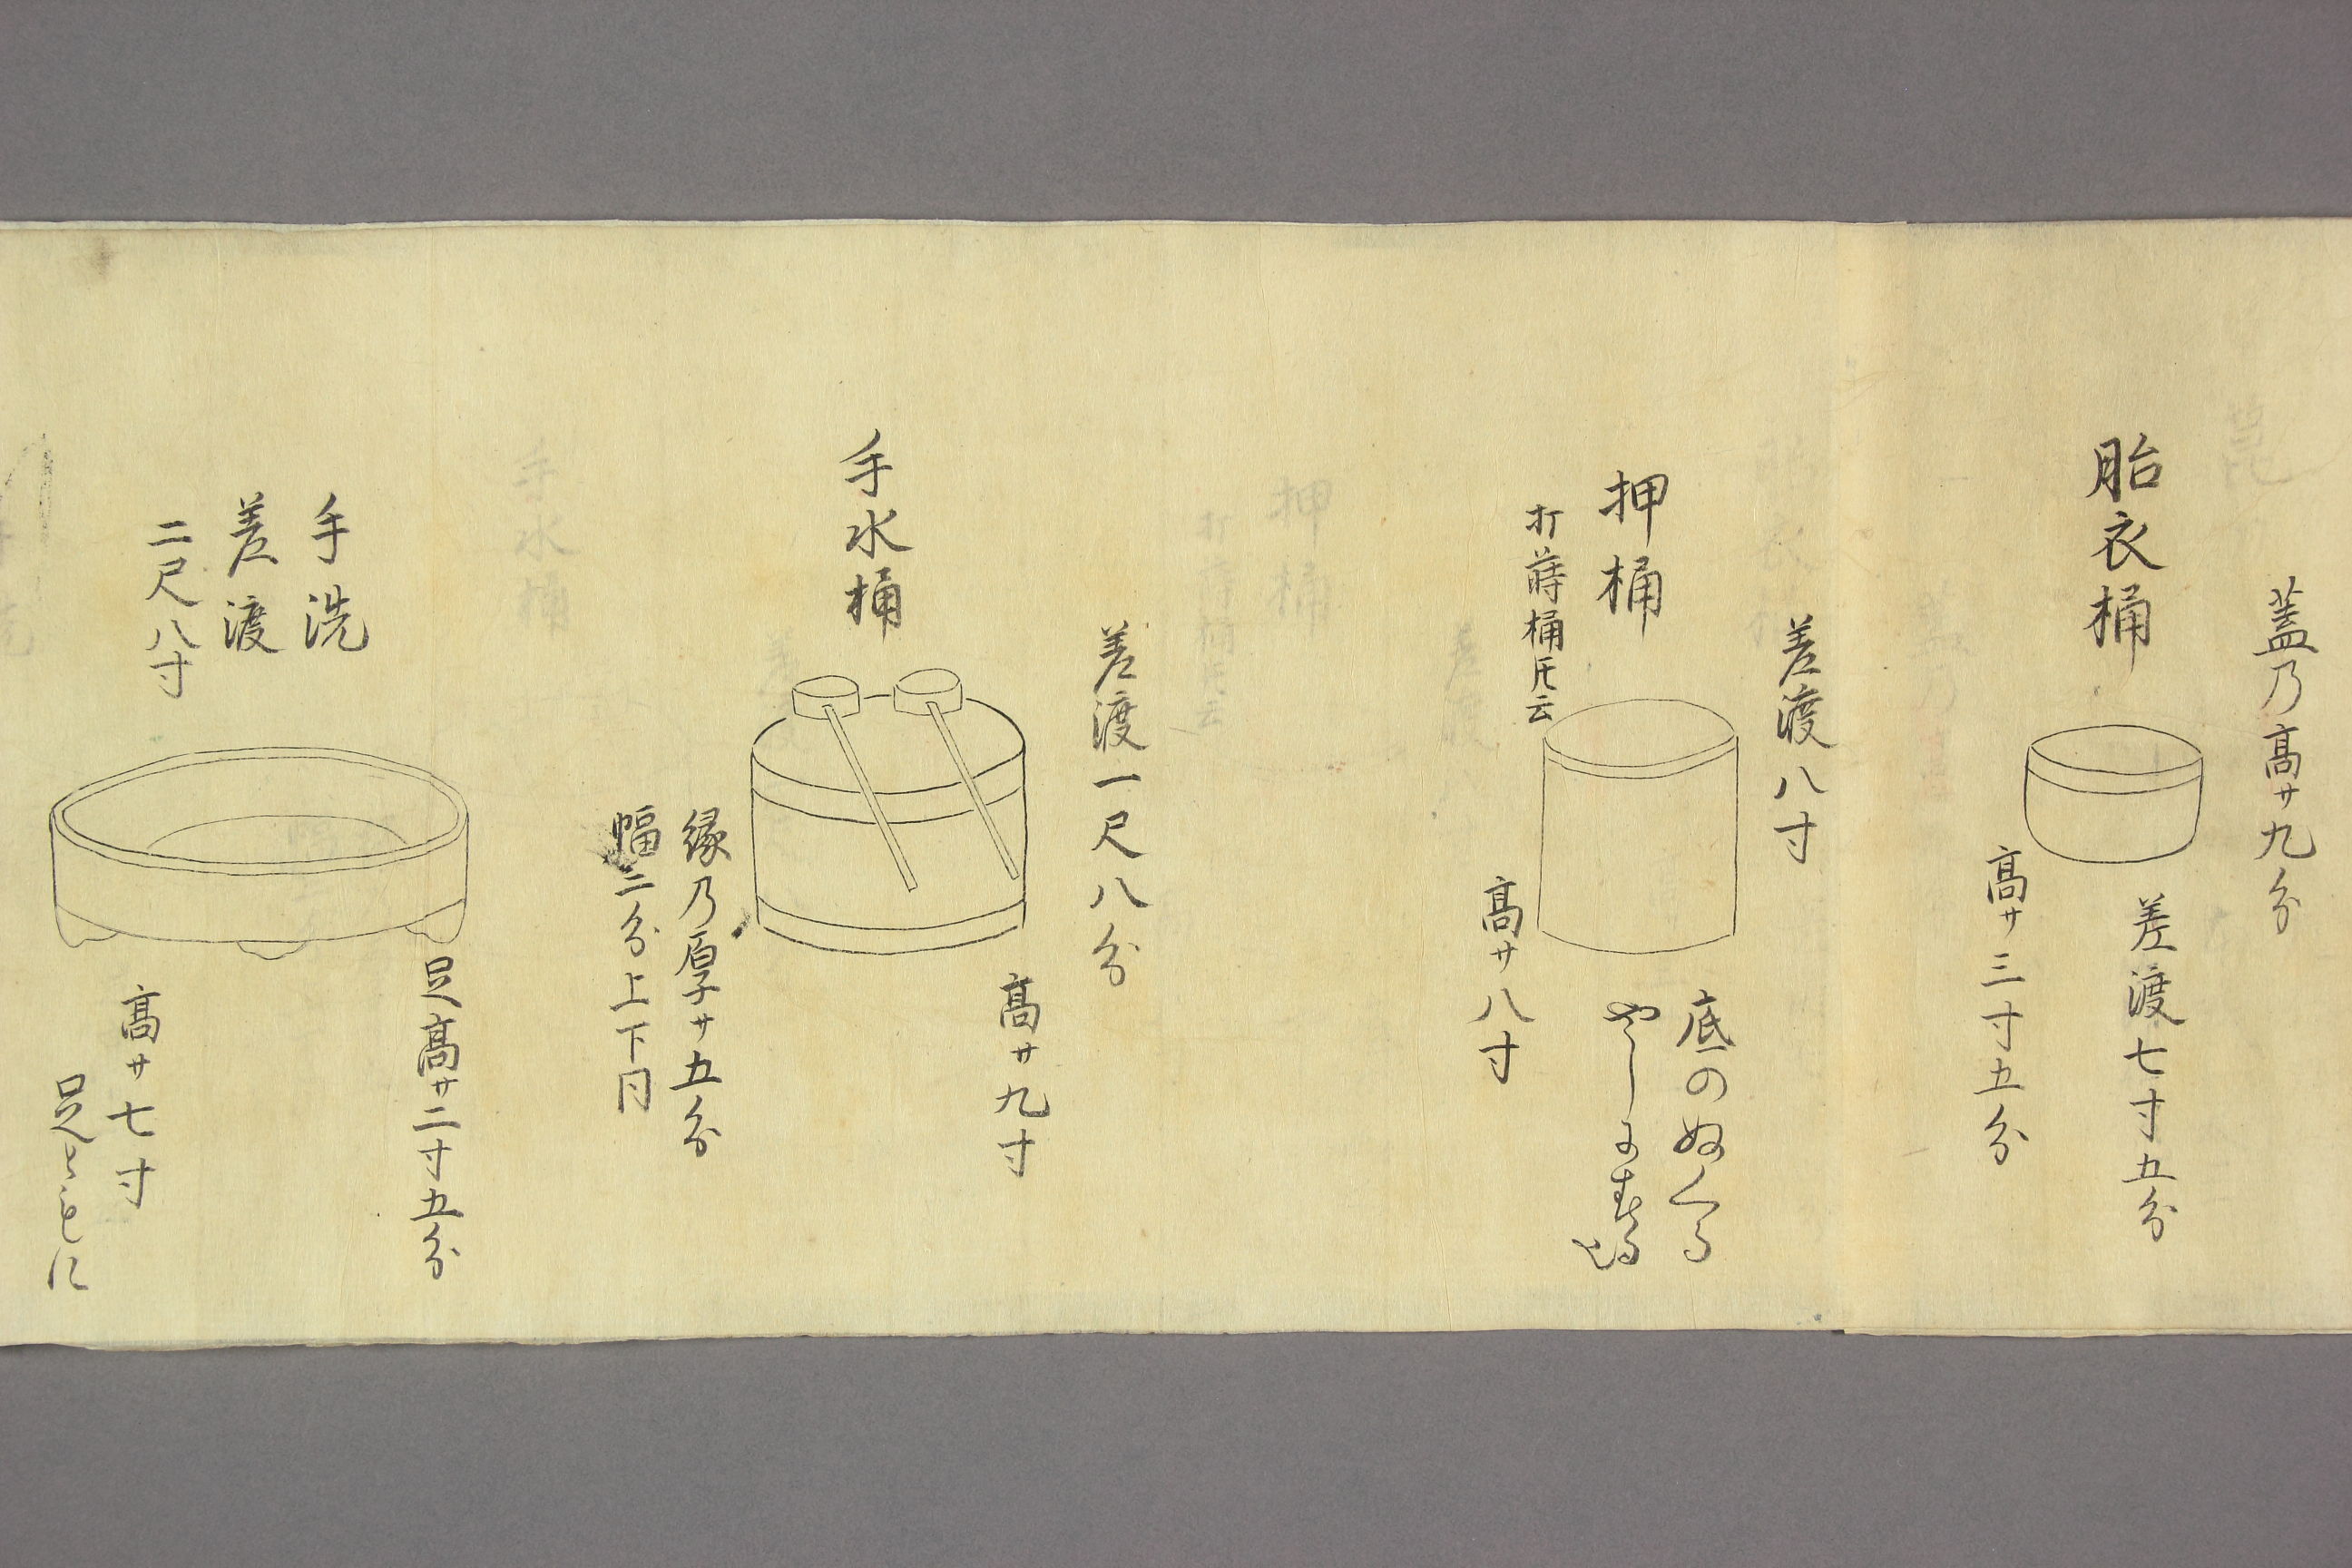 蓋乃高サ九分
胎衣桶
差渡七寸五分
高サ三寸五分
差渡八寸
押桶
打蒔桶氏云
底のぬくる
やうにする也
高サ八寸
差渡一尺八分
高サ九寸
手水桶
縁乃厚サ五分
幅二分上下同
手洗
差渡
二尺八寸
足高サ二寸五分
高サ七寸
足ともに